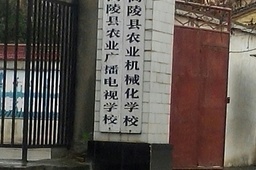 高陵县农业机械化学校
高陵县农业广播电视学校